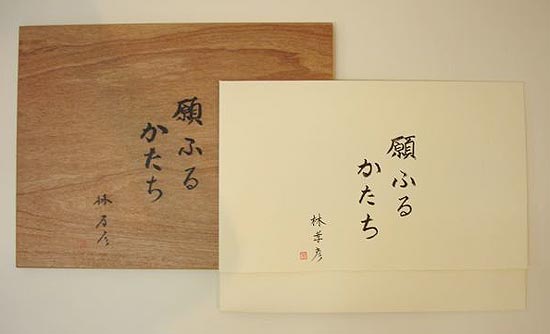 願ふる
かたち
林孝彦
願ふる
かたち
林孝彦